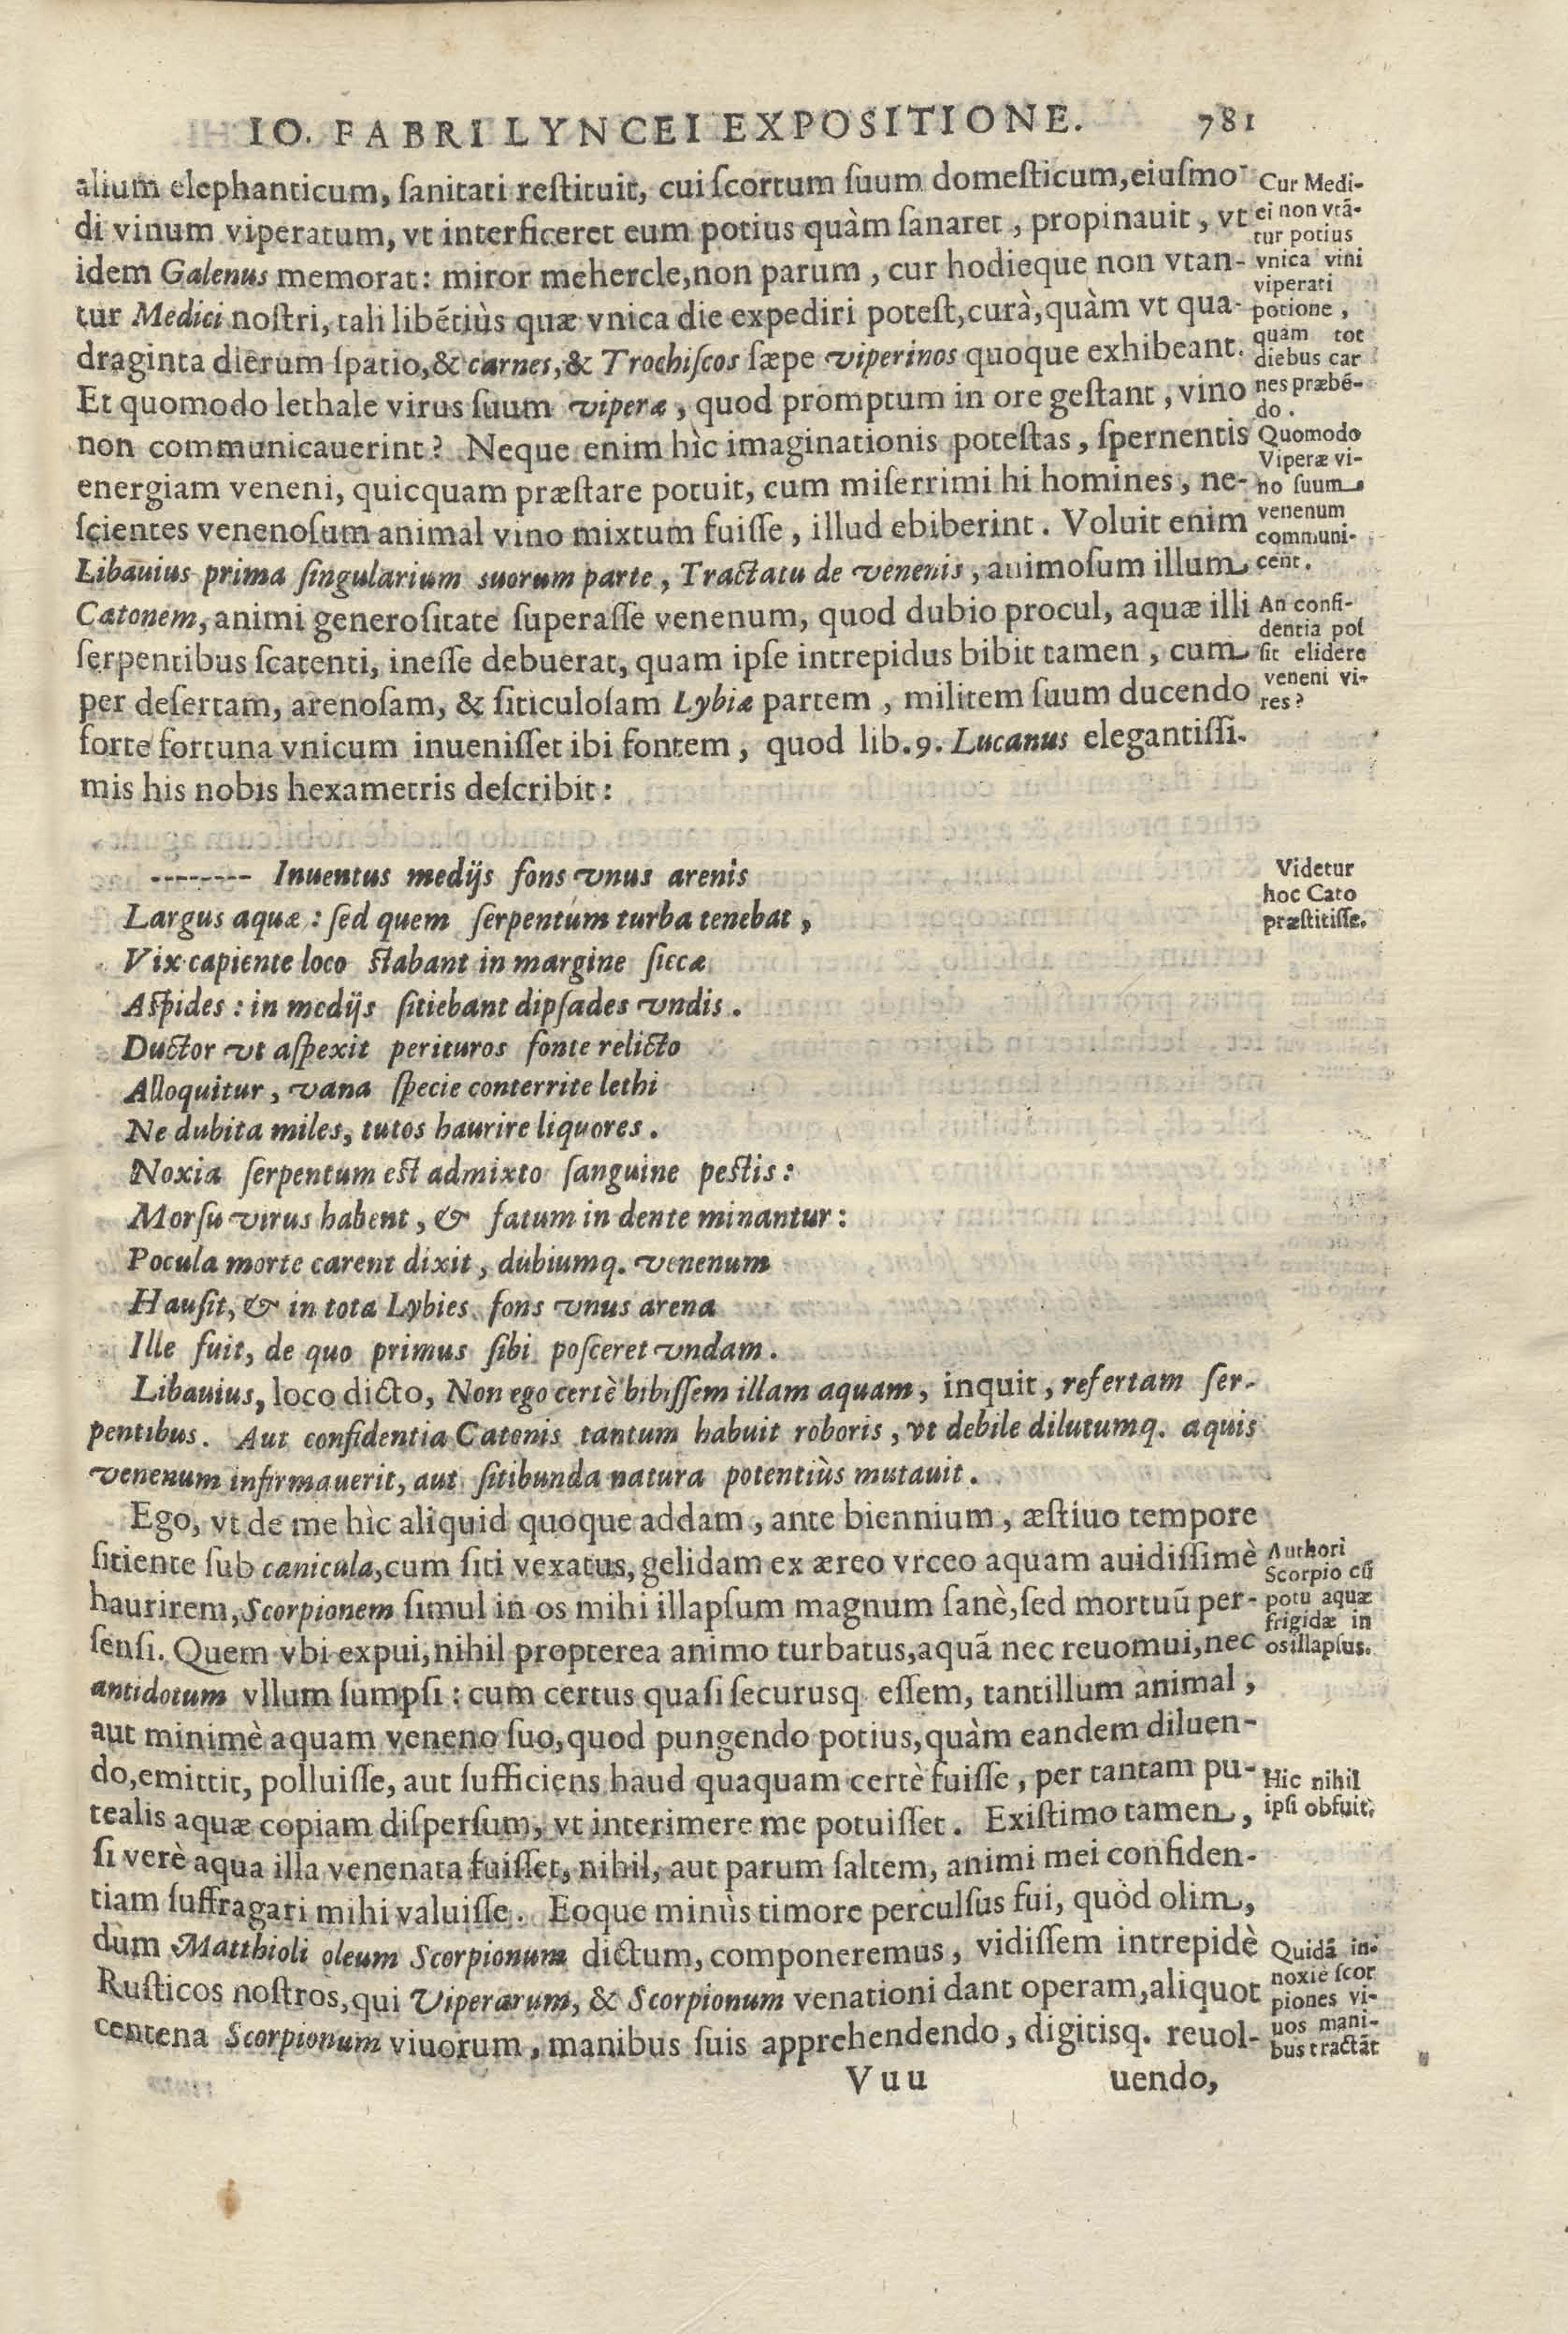 IO. FABRI LYNCEI EXPOSITIONE. 781
alium elephanticum, ſanitati reſtituit, cui ſcortum ſuum domeſticum, eiuſmo-
di vinum viperatum, vt interficeret eum potius quàm ſanaret, propinauit, vt
idem Galenus memorat: miror mehercle, non parum, cur hodieque non vtan-
tur Medici noſtri, tali libẽtiùs quæ vnica die expediri poteſt, curà, quàm vt qua-
draginta dierum ſpatio, & carnes, & Trochiſcos ſæpe viperinos quoque exhibeant.
Et quomodo lethale virus ſuum viperæ, quod promptum in ore geſtant, vino
non communicauerint? Neque enim hìc imaginationis poteſtas, ſpernentis
energiam veneni, quicquam præſtare potuit, cum miſerrimi hi homines, ne-
ſcientes venenoſum animal vino mixtum fuiſſe, illud ebiberint. Voluit enim
Libauius prima ſingularium suorum parte, Tractatu de venenis, animoſum illum
Catonem, animi generoſitate ſuperaſſe venenum, quod dubio procul, aquæ illi
ſerpentibus ſcatenti, ineſſe debuerat, quam ipſe intrepidus bibit tamen, cum
per deſertam, arenoſam, & ſiticuloſam Lybiæ partem, militem ſuum ducendo
forte fortuna vnicum inueniſſet ibi fontem, quod lib. 9. Lucanus elegantiſſi-
mis his nobis hexametris deſcribit:
Cur Medi-
ei non vtã-
tur potius
vnica vini
viperati
potione,
quam tot
diebus car
nes præbẽ-
do.
Quomodo
Viperæ vi-
no ſuum
venenum
communi-
cent.
An confi-
dentia poſ
ſit elidere
veneni vi-
res?
-------- Inuentus medijs fons vnus arenis
Largus aquæ: ſed quem ſerpentúm turba tenebat,
Vix capiente loco ſtabant in margine ſiccæ
Aſpides: in medijs ſitiebant dipſades vndis.
Ductor vt aſpexit perituros fonte relicto
Alloquitur, vana ſpecie conterrite lethi
Ne dubita miles, tutos haurire liquores.
Noxia ſerpentum eſt admixto ſanguine peſtis:
Morſu virus habent, & fatum in dente minantur:
Pocula morte carent dixit, dubiumq. venenum
Hauſit, & in tota Lybies fons vnus arena
Ille fuit, de quo primus ſibi poſceret vndam.
Videtur
hoc Cato
præſtitiſſe.
Libauius, loco dicto, Non ego certè bibiſſem illam aquam, inquit, refertam ſer-
pentibus. Aut confidentia Catonis tantum habuit roboris, vt debile dilutumq. aquis
venenum infirmauerit, aut ſitibunda natura potentiùs mutauit.
Ego, vt de me hìc aliquid quoque addam, ante biennium, æſtiuo tempore
ſitiente ſub canicula, cum ſiti vexatus, gelidam ex æreo vrceo aquam auidiſſimè
haurirem, Scorpionem ſimul in os mihi illapſum magnum ſanè, ſed mortuũ per-
ſenſi. Quem vbi expui, nihil propterea animo turbatus, aquã nec reuomui, nec
antidotum vllum ſumpſi: cum certus quaſi ſecurusq eſſem, tantillum animal,
aut minimè aquam veneno ſuo, quod pungendo potius, quàm eandem diluen-
do, emittit, polluiſſe, aut ſufficiens haud quaquam certè fuiſſe, per tantam pu-
tealis aquæ copiam diſperſum, vt interimere me potuiſſet. Exiſtimo tamen,
ſi verè aqua illa venenata fuiſſet, nihil, aut parum ſaltem, animi mei confiden-
tiam ſuffragari mihi valuiſſe. Eoque minùs timore perculſus fui, quòd olim,
dùm Matthioli oleum Scorpionum dictum, componeremus, vidiſſem intrepidè
Ruſticos noſtros, qui Viperarum, & Scorpionum venationi dant operam, aliquot
centena Scorpionum viuorum, manibus ſuis apprehendendo, digitisq. reuol-
Authori
Scorpio cũ
potu aquæ
frigidæ in
os illapſus.
Hic nihil
ipſi obfuit.
Quidã in-
noxiè ſcor
piones vi-
uos mani-
bus tractãt
Vuu uendo,